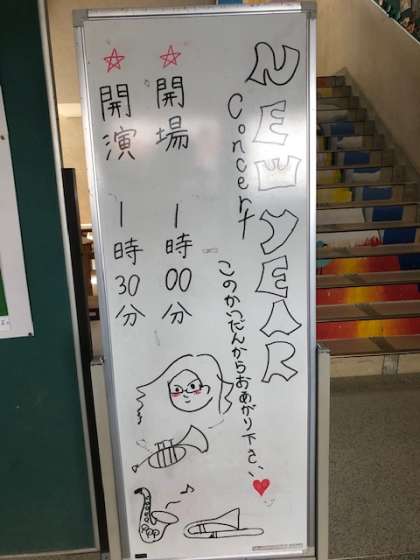 NEW YEAR
Concert
このかいだんからおあがり下さい
☆開場 1時00分
☆開演 1時30分